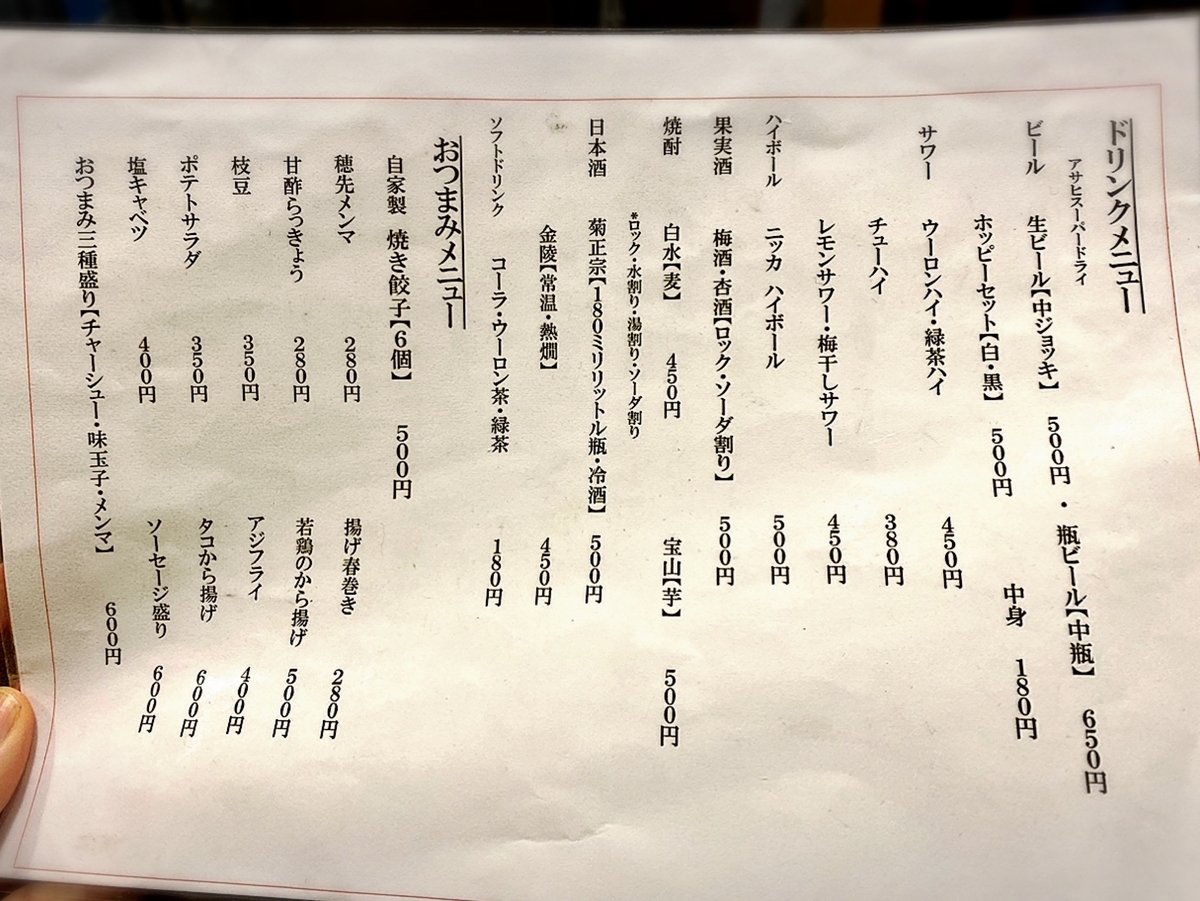 ドリンクメニュー
アサヒスーパードライ
ビール 生ビール【中ジョッキ】 500円 ・ 瓶ビール【中瓶】 650円
ホッピーセット【白・黒】 500円 中身 180円
サワー ウーロンハイ・緑茶ハイ 450円
チューハイ 380円
レモンサワー・梅干しサワー 450円
ハイボール ニッカ ハイボール 500円
果実酒 梅酒・杏酒【ロック・ソーダ割り】 500円
焼酎 白水【麦】 450円 宝山【芋】 500円
*ロック・水割り・湯割り・ソーダ割り
日本酒 菊正宗【180ミリリットル瓶・冷酒】 500円
金陵【常温・熱燗】 450円
ソフトドリンク コーラ・ウーロン茶・緑茶 180円
おつまみメニュー
自家製 焼き餃子【6個】 500円
穂先メンマ 280円 揚げ春巻き 280円
甘酢らっきょう 280円 若鶏のから揚げ 500円
枝豆 350円 アジフライ 400円
ポテトサラダ 350円 タコから揚げ 600円
塩キャベツ 400円 ソーセージ盛り 600円
おつまみ三種盛り【チャーシュー・味玉子・メンマ】 600円